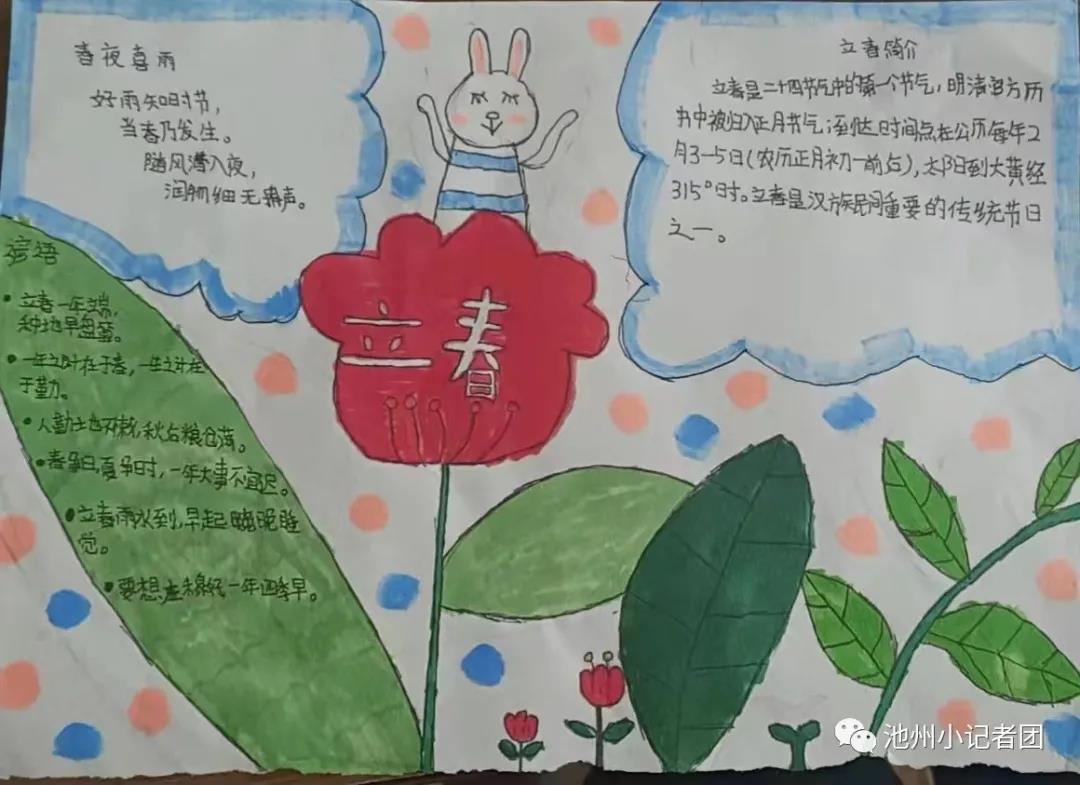 春夜喜雨
好雨知时节，
当春乃发生。
随风潜入夜，
润物细无声。
立春简介
立春是二十四节气中的第一个节气，明清官方历
书中被归入正月节气；到达时间点在公历每年2
月3-5日（农历正月初一前后），太阳到大黄经
315°时。立春是汉族民间重要的传统节日
之一。
立春
谚语
立春一年端，
种地早盘算。
一年之计在于春，一生之计在
于勤。
人勤地不懒，秋后粮仓满。
春争日，夏争时，一年大事不宜迟。
立春雨水到，早起晚睡
觉。
要想庄稼好，一年四季早。
池州小记者团